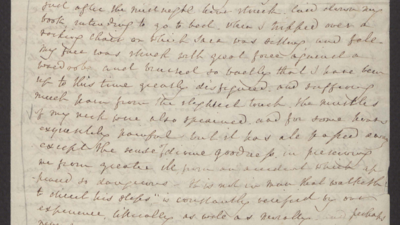 just after the midnight hour struck, laid down my
book, intending to go to bed, when I tripped over a
rocking chair in which Jack was sitting and fell.
my face was struck with great force against a
and bruised so badly that I have been
up to this time greatly disfigured, and suffering
much pain from the slightest touch. The muscles
of my neck were also sprained and for some hours
exquisitely painful - but it has all passed away
except the sense of divine goodness, in preserving
me from greater ill from an accident which ap-
peared so dangerous - It is not in man that walketh
to direct his steps" is constantly verified by our
experience, literally as well as morally perhaps